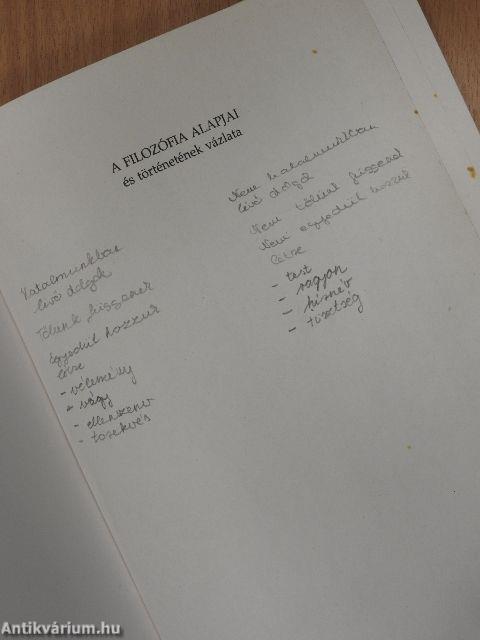 A FILOZÓFIA ALAPJAI
és történetének vázlata
Hatalmunkban
lévő dolgok
Tőlünk függenek
Egyedül hozzuk
létre
- vélemény
- vágy
- ellenszenv
- törekvés
Nem hatalmunkban
lévő dolgok
Nem tőlünk függenek
Nem egyedül hozzuk
létre
- test
- vagyon
- hírnév
- tisztség
Antikvárium.hu